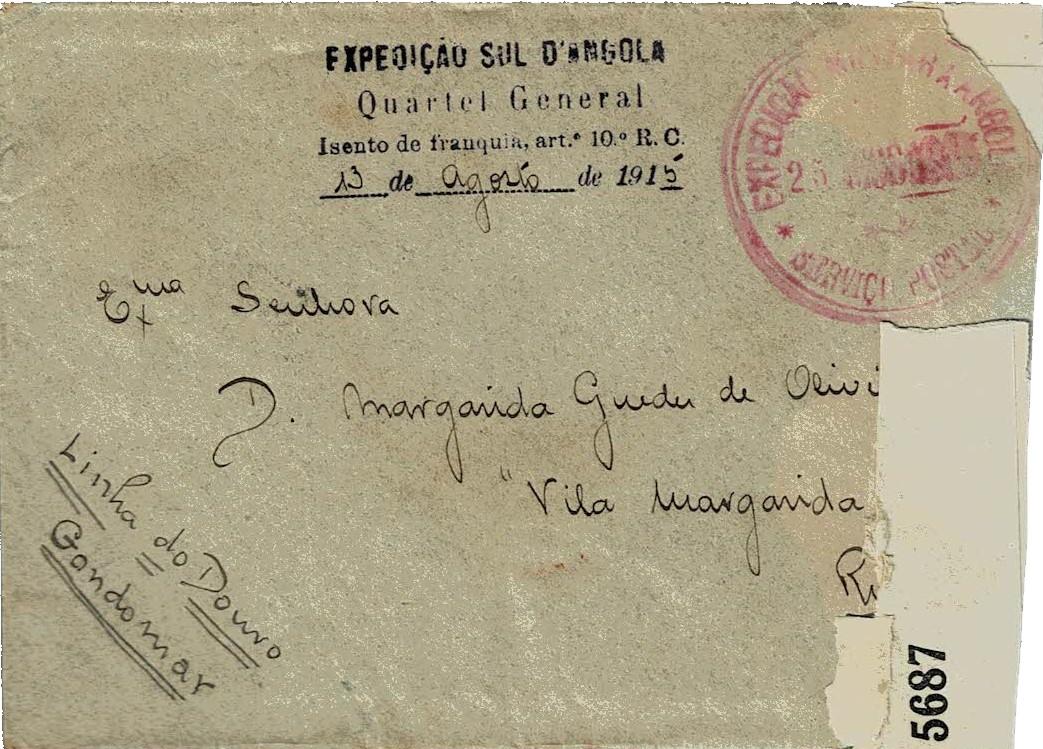 EXPEDIÇÃO SUL D'ANGOLA
Quartel General
Isento de franquia, art.º 10.º R. C.
13 de Agosto de 1915
EXPEDIÇÃO MILITAR A ANGOL
25
* SERVIÇO POSTAL *
Exma Senhora
D. Margarida Guedes de Olivi
"Vila Margarida
Linha do Douro
Gondomar
5687